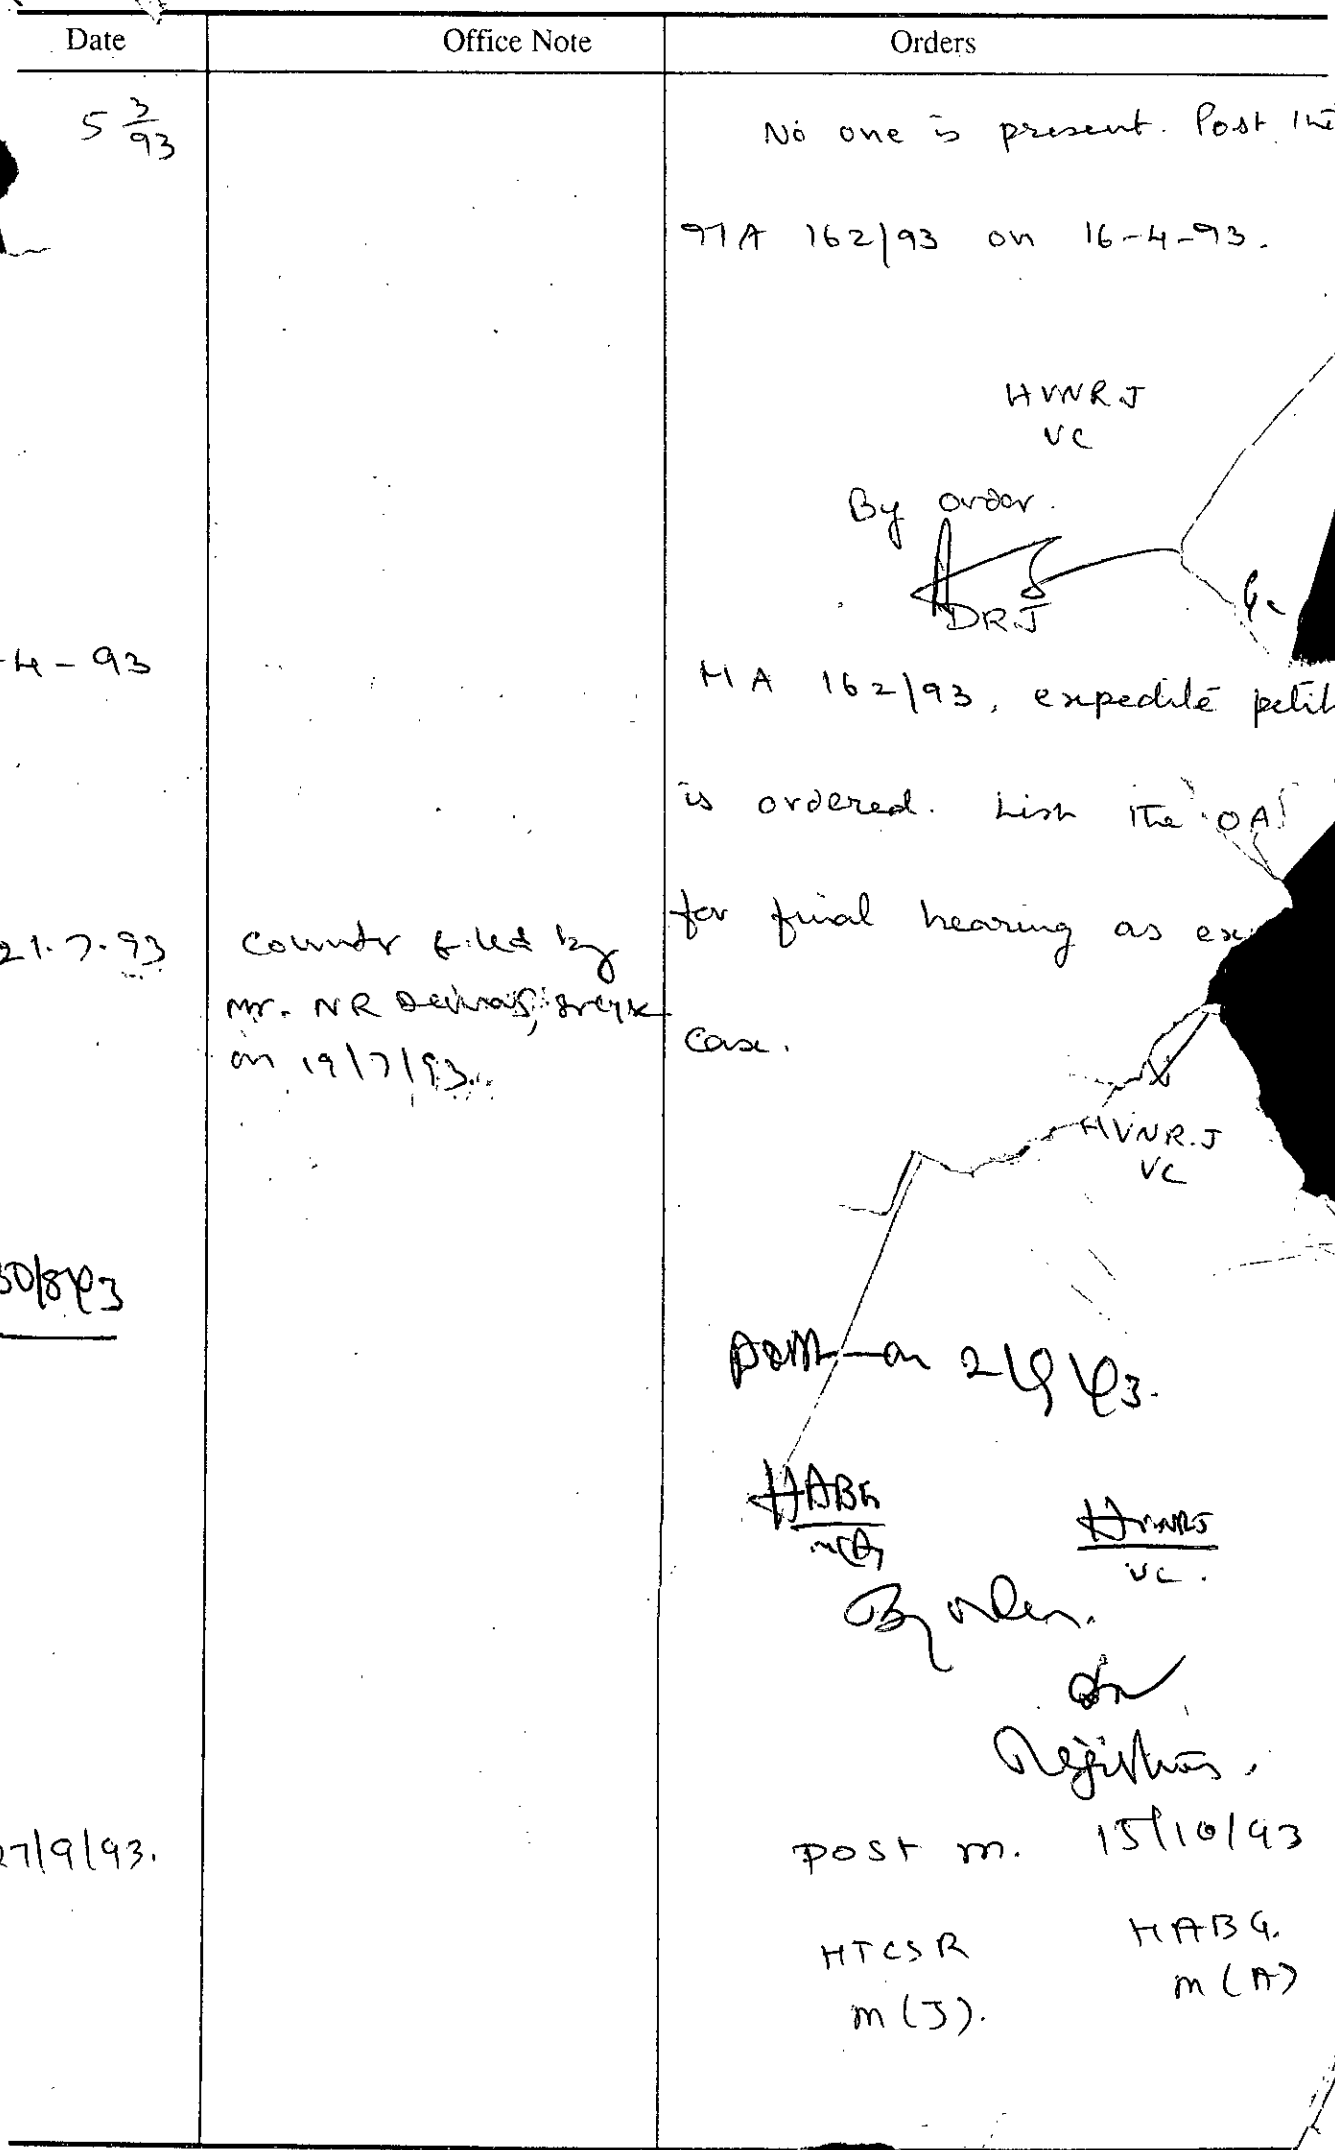 Date Office Note Orders
5 3/93 No one is present. Post the
MA 162/93 on 16-4-93.
HVNRJ
VC
By order.
DRJ
-4-93 MA 162/93, expedite petit
is ordered. List the OA
for final hearing as ex
case.
HVNR.J
VC
21.7.93 Counter filed by
Mr. NR
on 19/7/93.
30/8/93
Post on
HABG
M(A)
HVNRJ
VC.
By order.
Registrar.
27/9/93. post on. 15/10/93
HTCSR HABG.
M(J). M(A)